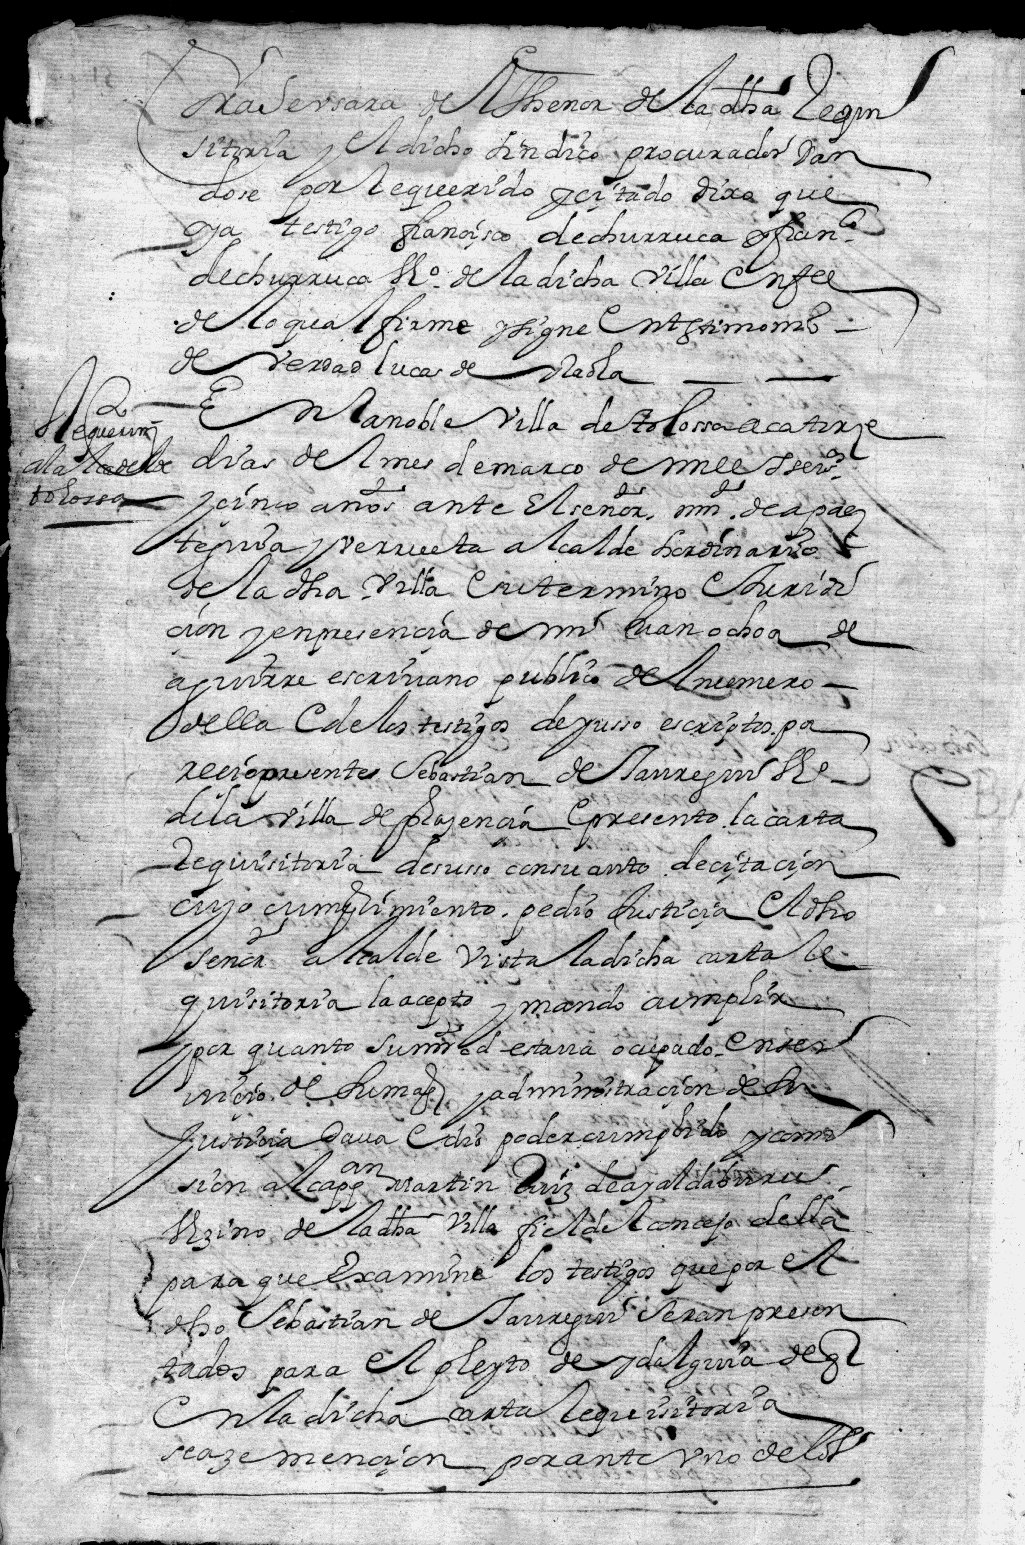 tra Sersara de El thenor de la dha Requi
sitoria y El dicho sindico procurador dan
dose por Requerido y citado dixo que
oya testigo françisco dechurruca fran.co
dechurruca Vo. de la dicha Villa En fee
de lo qual firme y signe En testimonio
de Verdad lucas de
En la noble Villa de tolossa a catorze
Requerim.to
a la de
tolossa
dias de El mes de março de mill y seis.os
y cinco años ante El señor mn. de
teguia y verrueta alcalde hordinario
de la dha Villa E su termino E Juridi
çion y en presençia de mi Juan ochoa de
aguirre escriuano publico de El numero
della E de los testigos de yusso escriptos pa
recio presente Sebastian de Jauregui Vo.
de la Villa de plazençia E presento la carta
Requisitoria desusso con su auto de çitaçion
cuyo cumplimiento pedio Justicia El dho
señor alcalde Vista la dicha carta Re
quisitoria la acepto y mando cumplir
y por quanto su md estaua ocupado En ser
uiçio de su mag. y administraçion de su
Justiçia daua E dio poder cumplido y comi
sion al capp.an martin Ruiz de ayaldaburu
Vezino de la dha Villa fiel del conçejo della
para que Examine los testigos que por el
dho Sebastian de Jauregui Seran presen
tados para El pleyto de ydalguia de q
En la dicha carta Requisitoria
se aze mençion por ante vno de los